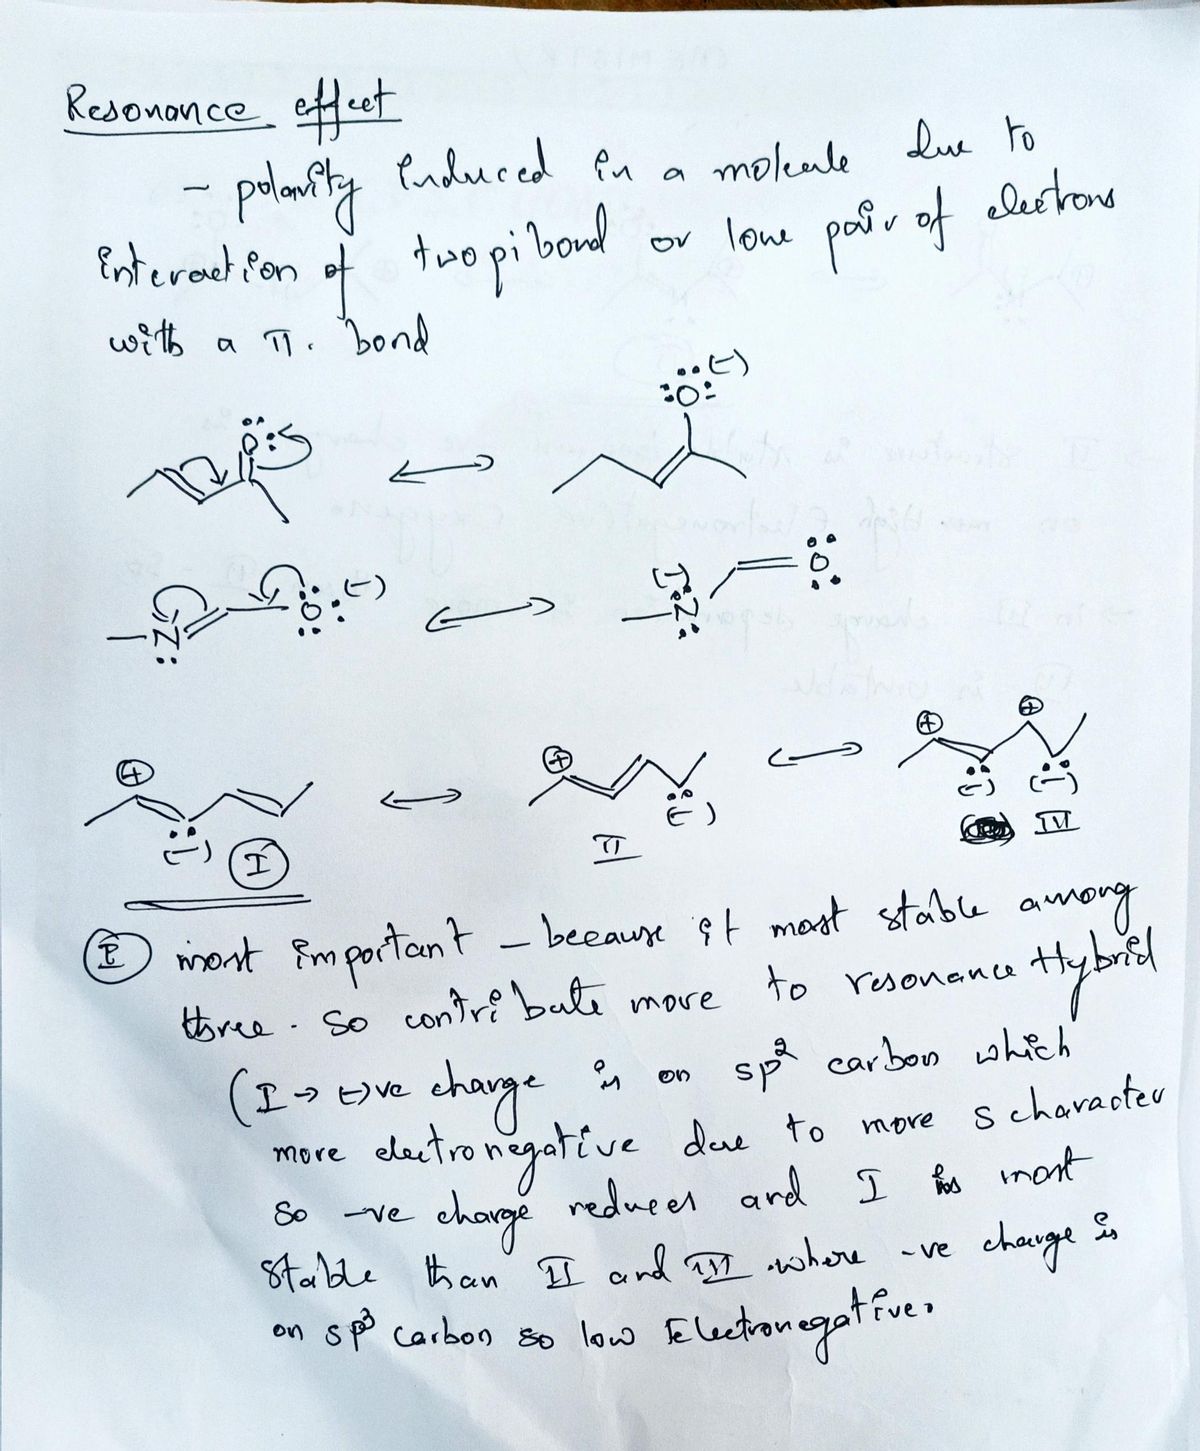 Resonance effect
- polarity induced in a molecule due to
interaction of two pi bond or lone pair of electrons
with a π. bond
(-)
:O:
O:
(-)
O
O: (-)
(-)
N
N
+
+
+ +
(-)
(-) (-)
(-) I
II
IV
I most important - because it most stable among
three. So contribute more to resonance Hybrid
(I → (-)ve charge is on sp² carbon which
more electronegative due to more s character
so -ve charge reduces and I is most
stable than II and III where -ve charge is
on sp³ carbon so low Electronegative.